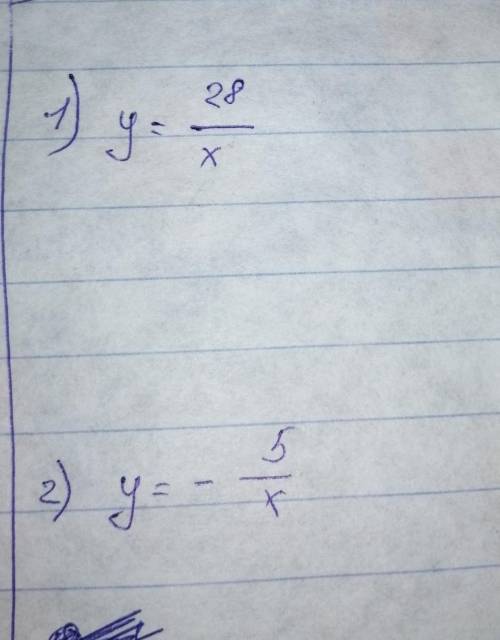 1) y = 28/x
2) y = - 5/x